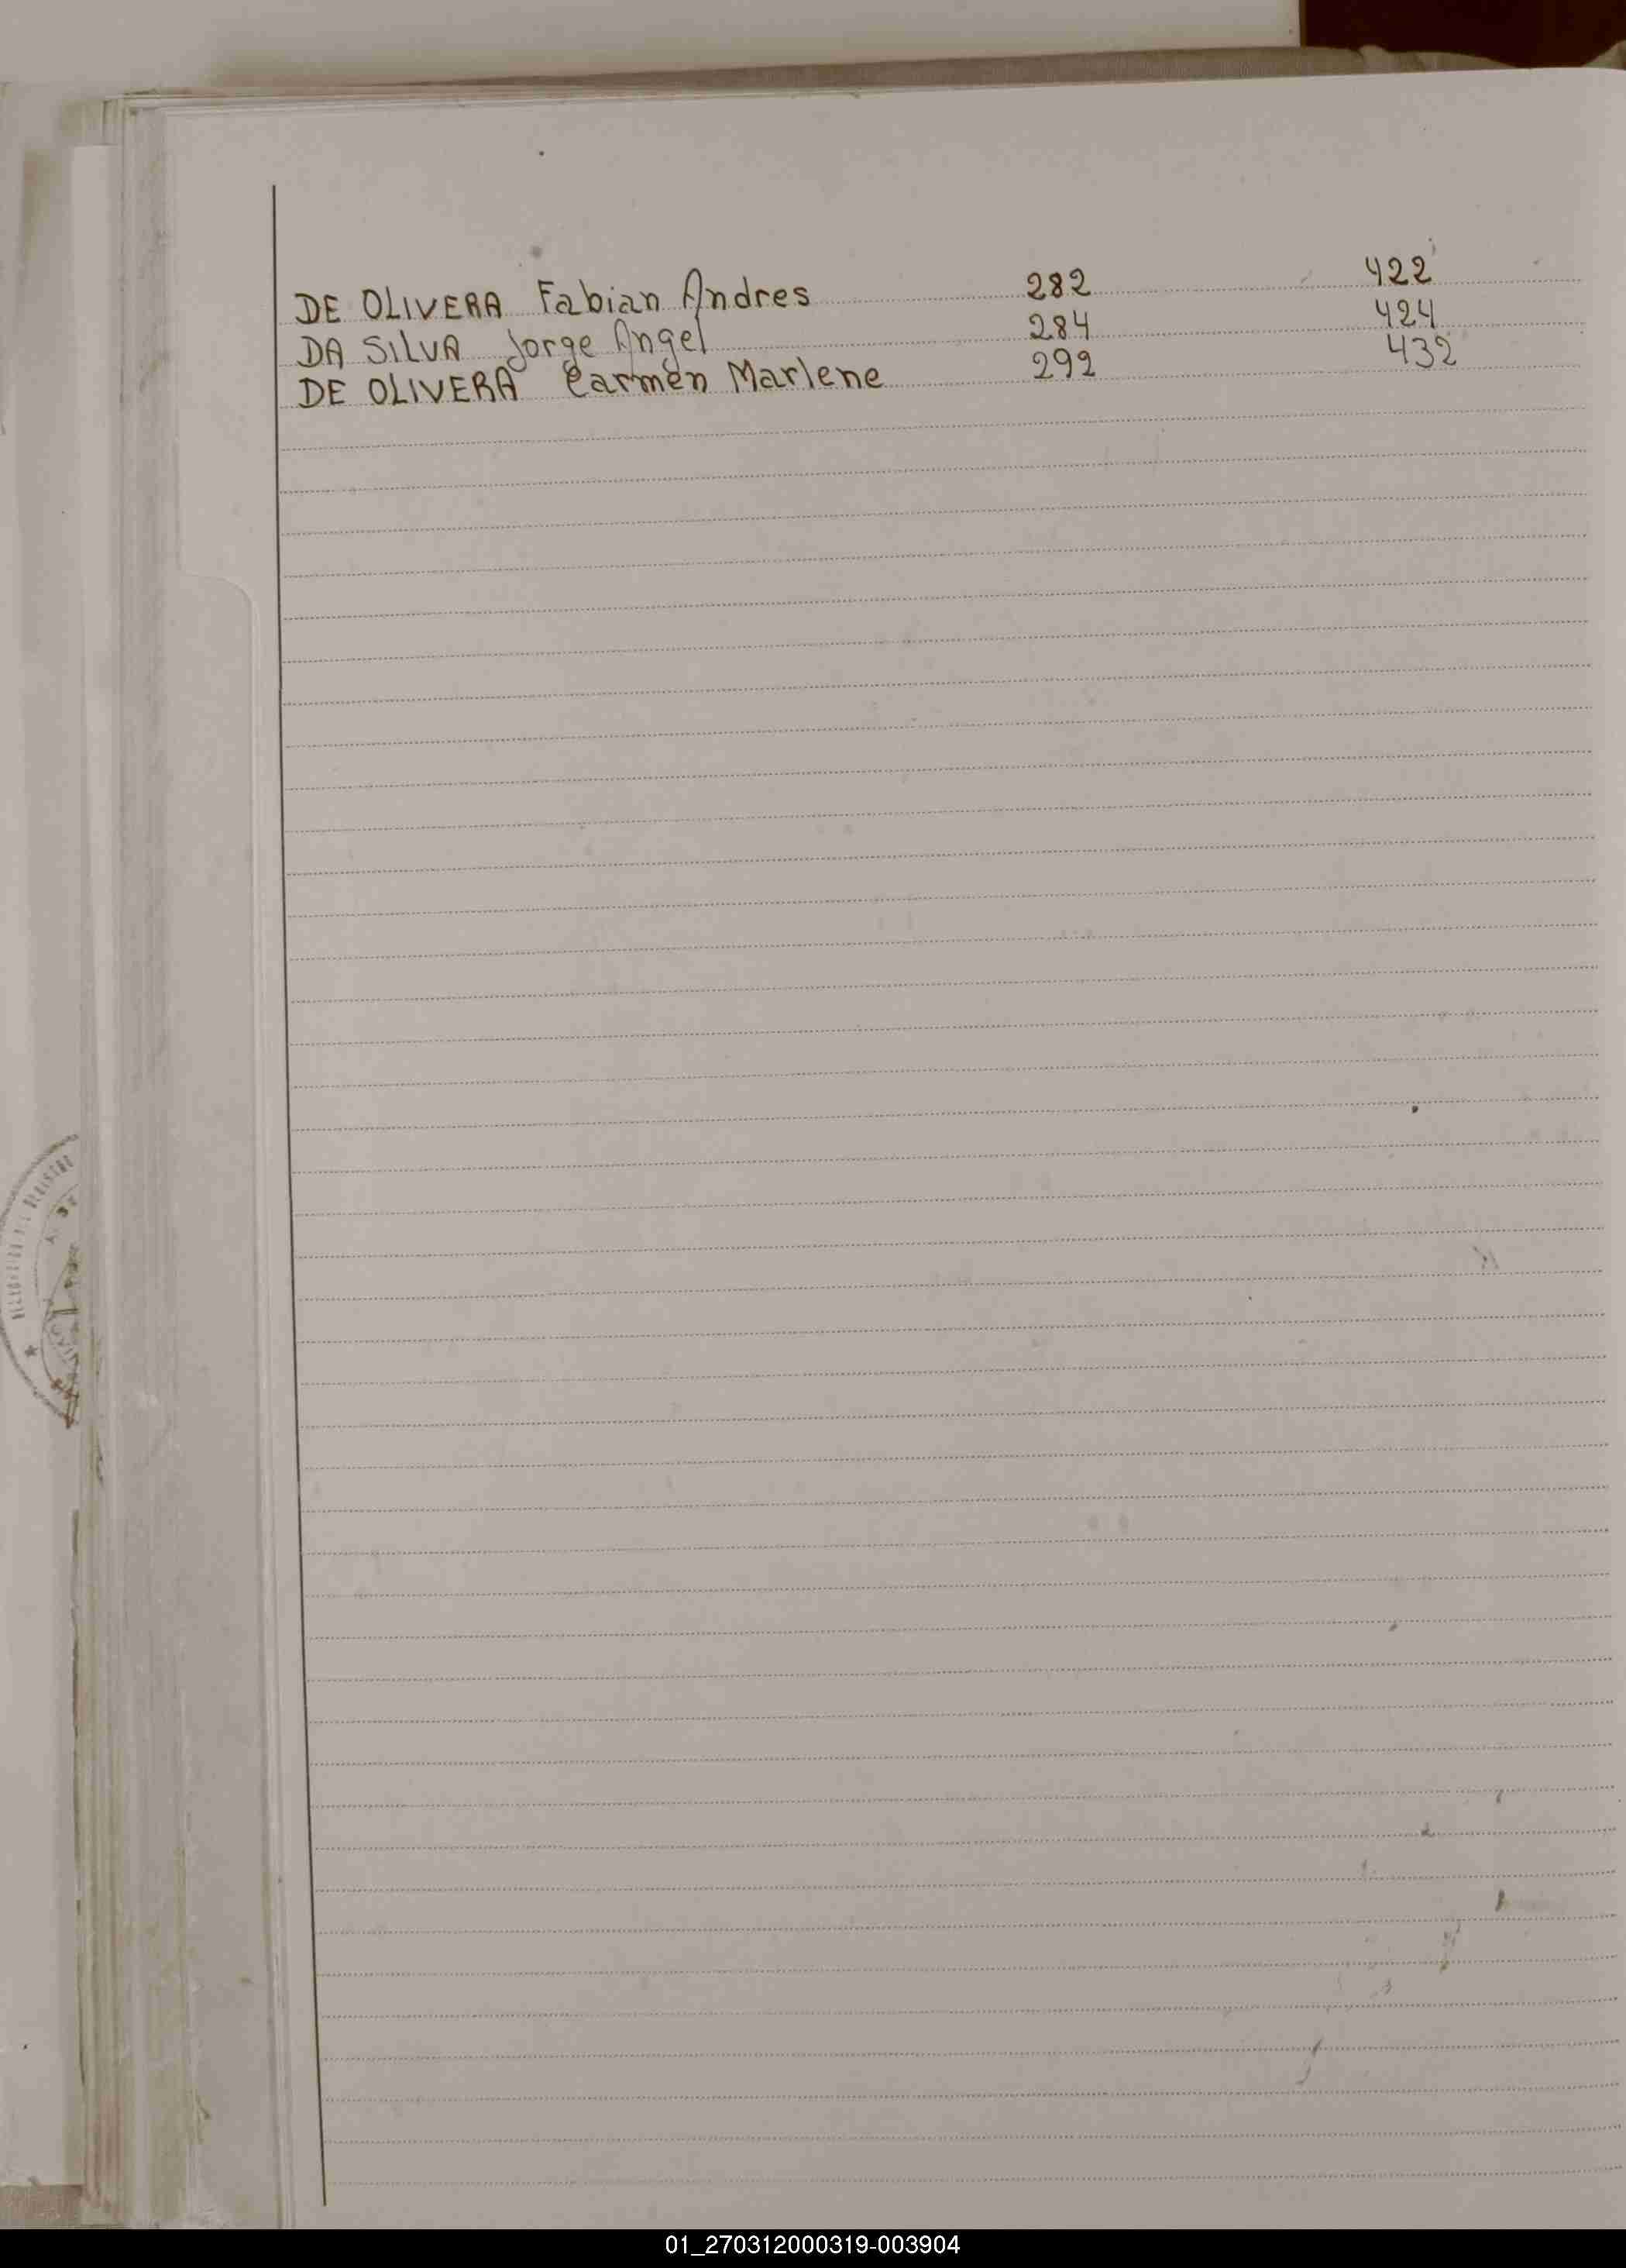 DE OLIVERA Fabian Andres 282 422
DA SILVA Jorge Angel 284 424
DE OLIVERA Carmen Marlene 292 432
01_270312000319-003904